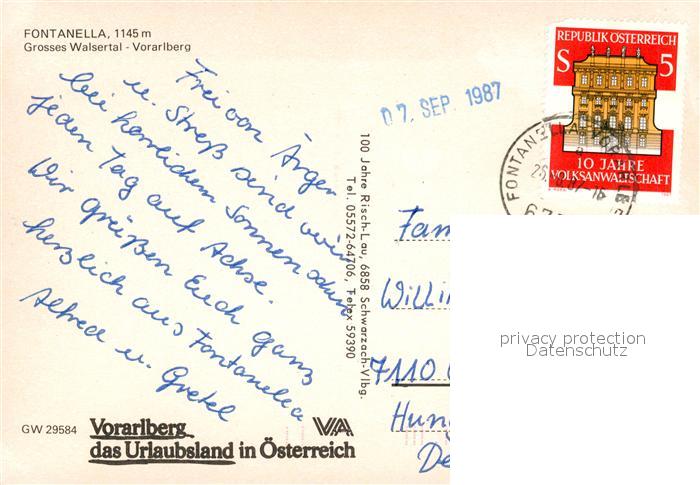 FONTANELLA, 1145 m
Grosses Walsertal - Vorarlberg
Frei von Ärger
u. Streß sind wir
bei herrlichem Sonnenschein
jeden Tag auf Achse.
Wir grüßen Euch ganz
herzlich aus Fontanella
Alfred u. Gretel
GW 29584
Vorarlberg
das Urlaubsland in Österreich
VA
100 Jahre Risch-Lau, 6858 Schwarzach-Vlbg.
Tel. 05572-64706, Telex 59390
07. SEP. 1987
REPUBLIK ÖSTERREICH
S 5
10 JAHRE
VOLKSANWALTSCHAFT
FONTANELLA
Fam
Willi
7110
Hun
De
privacy protection
Datenschutz